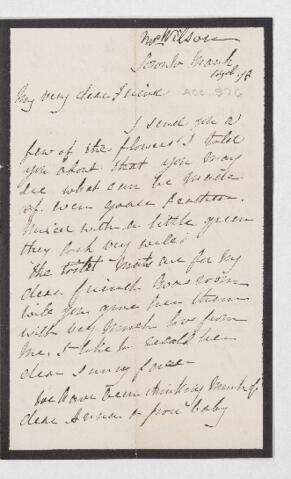 Mrs Wilson
Toronto March
My very dear Friend
ACC. 976
I send you a
few of the flowers I told
you about that you may
see what can be made
of even goose feathers.
Mixed with a little green
they look very well.
The toilet mats are for my
dear friend
will you give her them
with very much love from
me, I like to recall her
dear sunny face
We have been thinking much of
dear Anna & poor baby